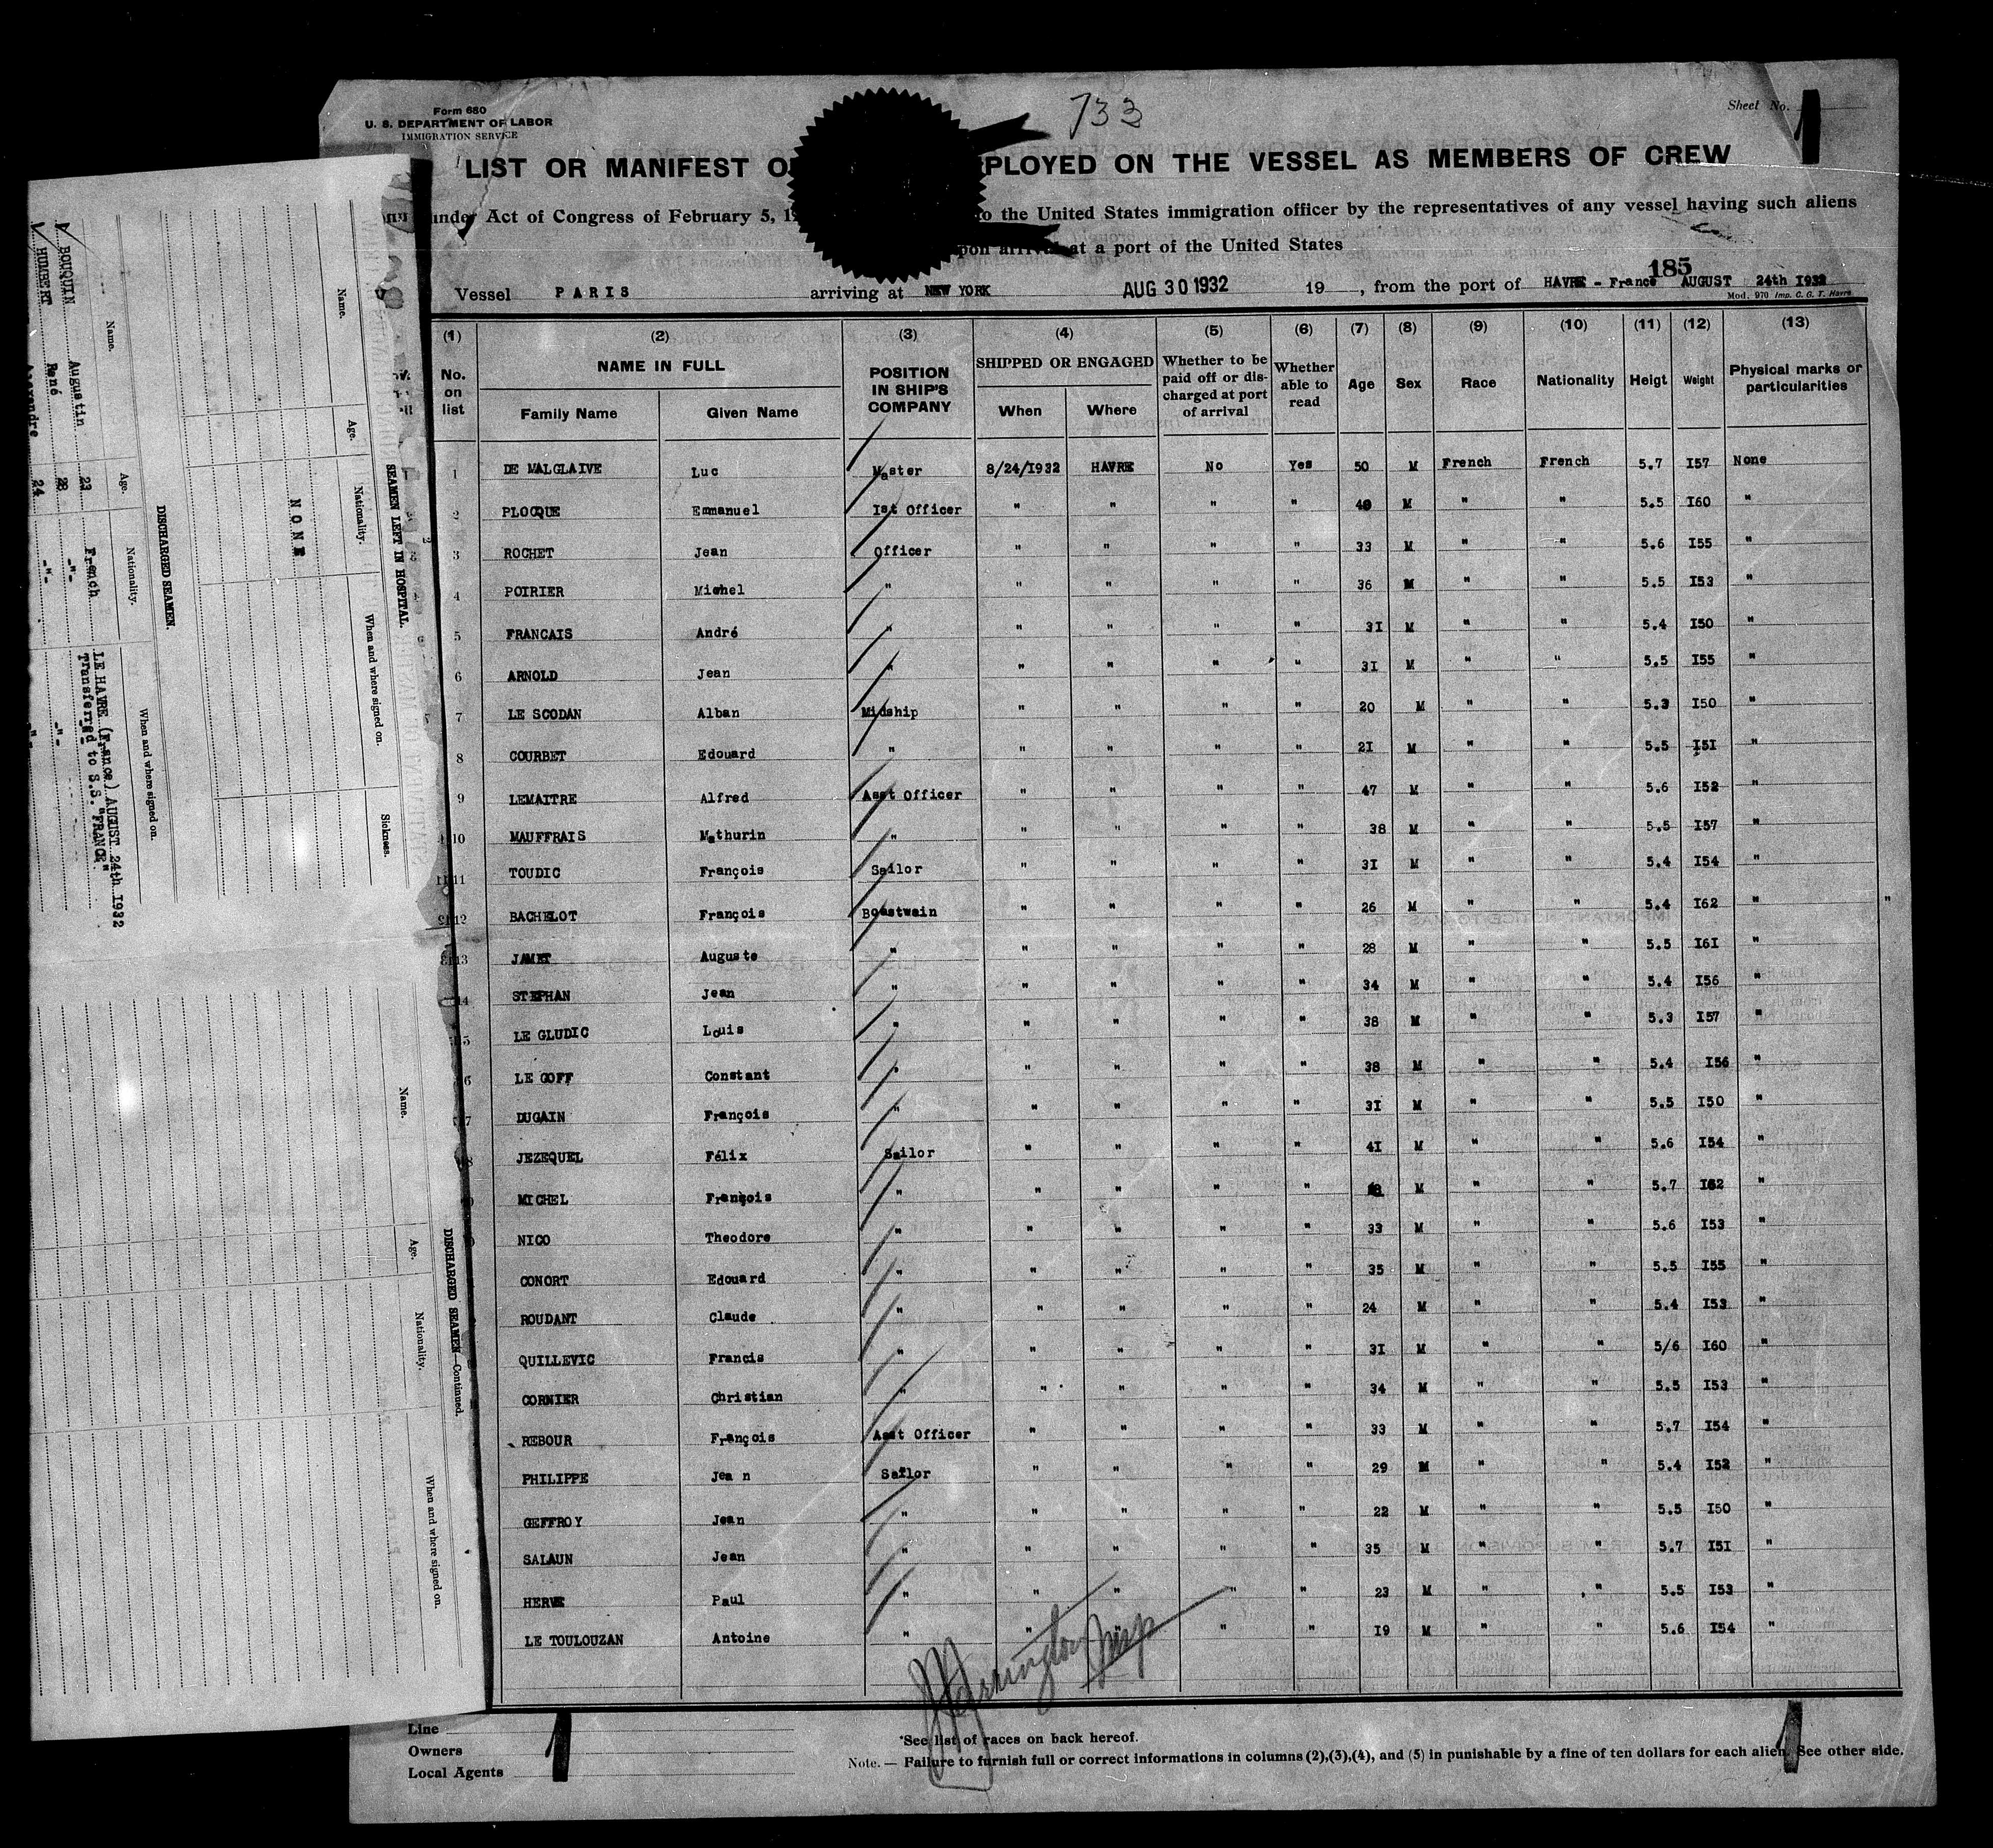 Form 680
U. S. DEPARTMENT OF LABOR
IMMIGRATION SERVICE
733
Sheet No. 1
LIST OR MANIFEST O PLOYED ON THE VESSEL AS MEMBERS OF CREW
under Act of Congress of February 5, 19 to the United States immigration officer by the representatives of any vessel having such aliens
upon arrival at a port of the United States
185
Vessel PARIS arriving at NEW YORK AUG 30 1932 19 , from the port of HAVRE - France AUGUST 24th I932
Mod. 970 Imp. C. G. T. Havre
(1) (2) (3) (4) (5) (6) (7) (8) (9) (10) (11) (12) (13)
No. on list NAME IN FULL Family Name Given Name POSITION IN SHIP'S COMPANY SHIPPED OR ENGAGED When Where Whether to be paid off or discharged at port of arrival Whether able to read Age Sex Race Nationality Heigt Weight Physical marks or particularities
1 DE MALGLAIVE Luc Master 8/24/1932 HAVRE No Yes 50 M French French 5.7 I57 None
2 PLOCQUE Emmanuel Ist Officer " " " " 40 M " " 5.5 I60 "
3 ROCHET Jean Officer " " " " 33 M " " 5.6 I55 "
4 POIRIER Michel " " " " " 36 M " " 5.5 I53 "
5 FRANCAIS André " " " " " 3I M " " 5.4 I50 "
6 ARNOLD Jean " " " " " 3I M " " 5.5 I55 "
7 LE SCODAN Alban Midship " " " " 20 M " " 5.3 I50 "
8 COURBET Edouard " " " " " 2I M " " 5.5 I5I "
9 LEMAITRE Alfred Asst Officer " " " " 47 M " " 5.6 I52 "
10 MAUFFRAIS Mathurin " " " " " 38 M " " 5.5 I57 "
11 TOUDIC François Sailor " " " " 3I M " " 5.4 I54 "
12 BACHELOT François Boastwain " " " " 26 M " " 5.4 I62 " "
13 JAMET Auguste " " " " " 28 M " " 5.5 I6I "
14 STEPHAN Jean " " " " " 34 M " " 5.4 I56 "
5 LE GLUDIC Louis " " " " " 38 M " " 5.3 I57 "
6 LE GOFF Constant " " " " " 38 M " " 5.4 I56 "
7 DUGAIN François " " " " " 3I M " " 5.5 I50 "
8 JEZEQUEL Félix Sailor " " " " 4I M " " 5.6 I54 "
MICHEL François " " " " " M " " 5.7 I62 "
NICO Theodore " " " " " 33 M " " 5.6 I53 "
CONORT Edouard " " " " " 35 M " " 5.5 I55 "
ROUDANT Claude " " " " " 24 M " " 5.4 I53 "
QUILLEVIC Francis " " " " " 3I M " " 5/6 I60 "
CORNIER Christian " " " " " 34 M " " 5.5 I53 "
REBOUR François Asst Officer " " " " 33 M " " 5.7 I54 "
PHILIPPE Jea n Sailor " " " " 29 M " " 5.4 I52 "
GEFFROY Jean " " " " " 22 M " " 5.5 I50 "
SALAUN Jean " " " " " 35 M " " 5.7 I5I "
HERVE Paul " " " " " 23 M " " 5.5 I53 "
LE TOULOUZAN Antoine " " " " I9 M " " 5.6 I54 "
Line
Owners
Local Agents
*See list of races on back hereof.
Note. — Failure to furnish full or correct informations in columns (2),(3),(4), and (5) in punishable by a fine of ten dollars for each alien. See other side.
SEAMEN LEFT IN HOSPITAL.
Name. Age. Nationality. When and where signed on. Sickness.
NONE
DISCHARGED SEAMEN.
Name. Age. Nationality. When and where signed on.
BOUQUIN Augustin 23 French LE HAVRE (France) AUGUST 24th I932
Transferred to S.S. "FRANCE"
HUMBERT René 28 -"- -"-
24 -"- -"-
DISCHARGED SEAMEN—Continued.
Name. Age. Nationality. When and where signed on.